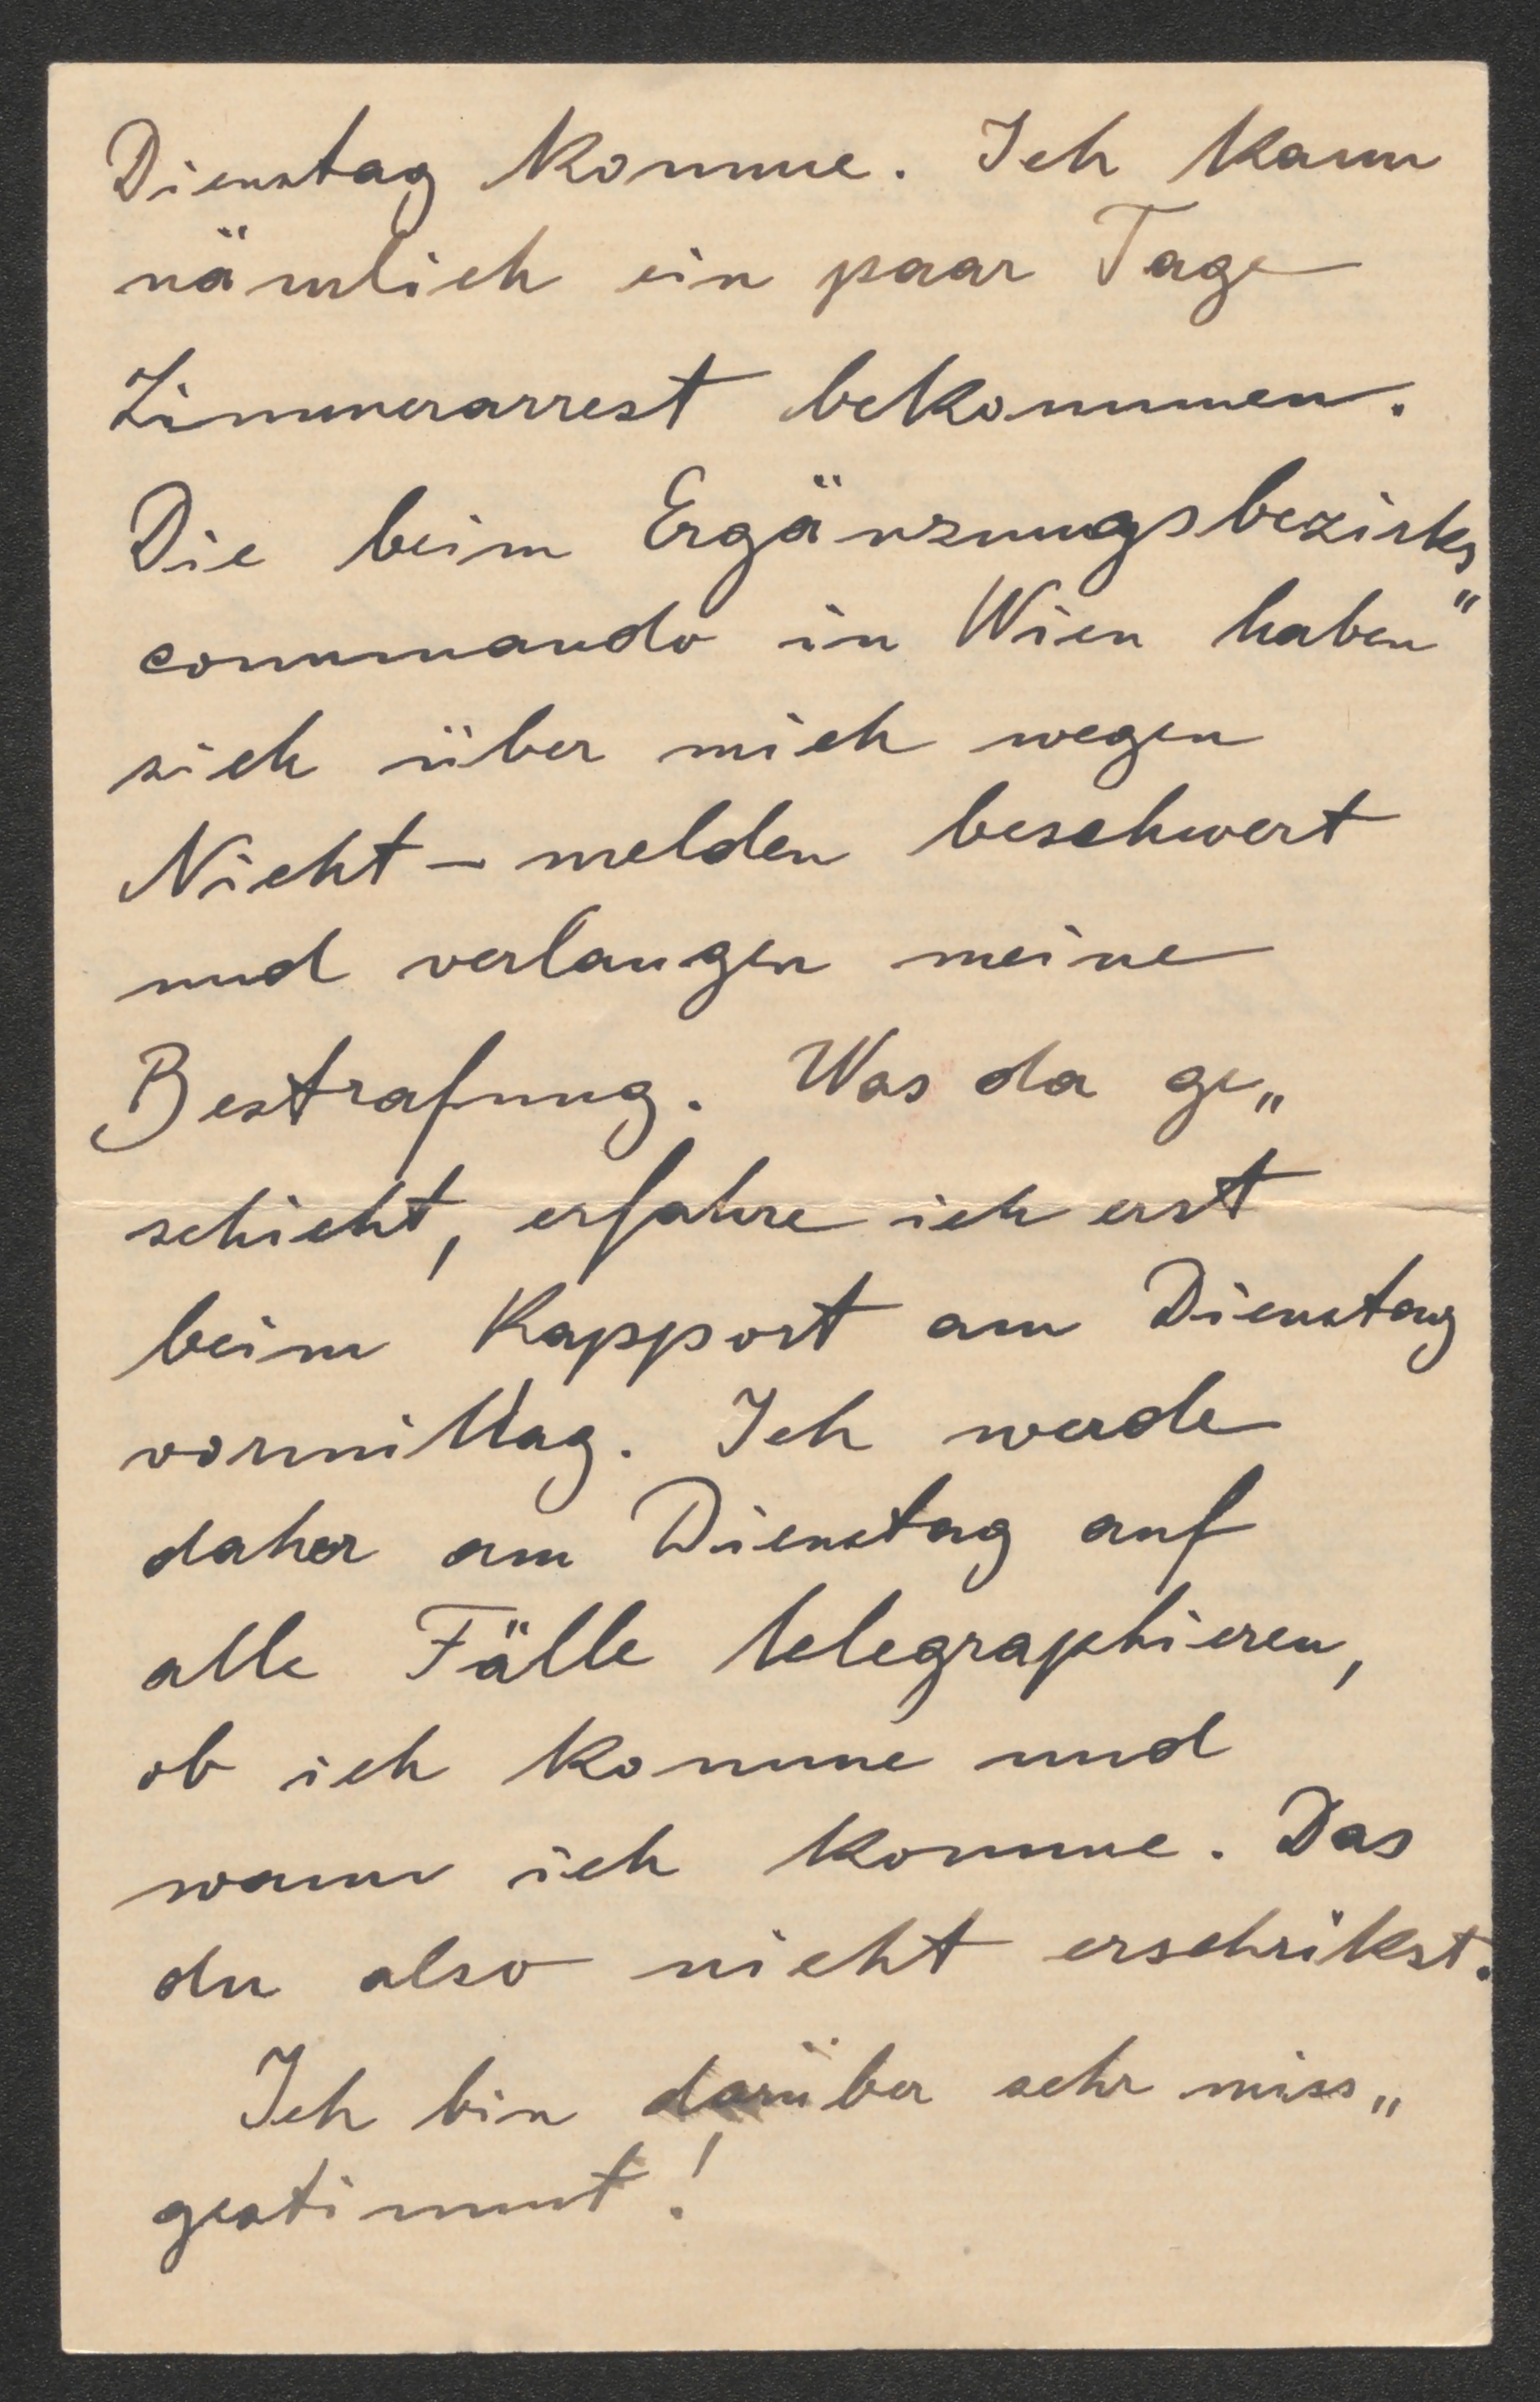 Dienstag komme. Ich kann
nämlich ein paar Tage
Zimmerarrest bekommen.
Die beim Ergänzungsbezirks„
commando in Wien haben
sich über mich wegen
Nicht-melden beschwert
und verlangen meine
Bestrafung. Was da ge„
schieht, erfahre ich erst
beim Rapport am Dienstag
vormittag. Ich werde
daher am Dienstag auf
alle Fälle telegraphieren,
ob ich komme und
wann ich komme. Das
du also nicht erschrikst.
Ich bin darüber sehr miss„
gestimmt!